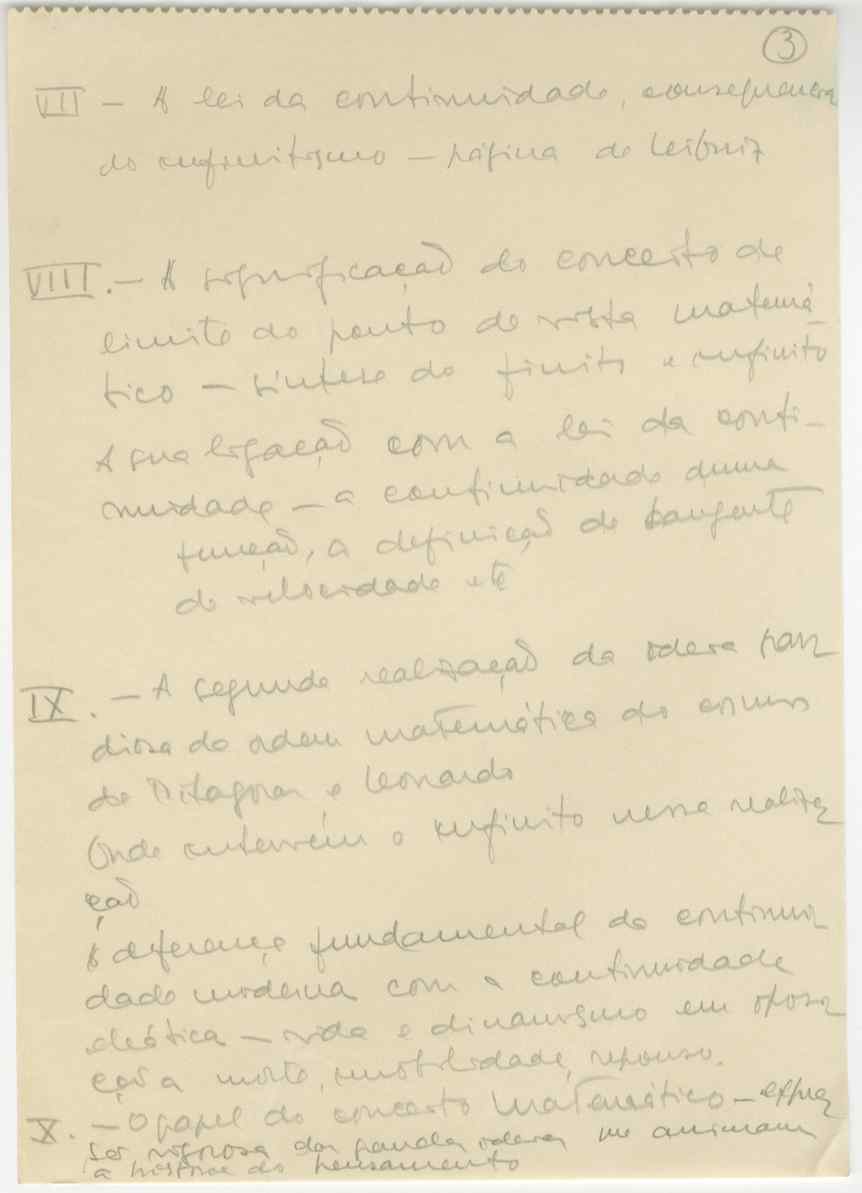 3
VII — A lei da continuidade, consequencia
do infinitismo — página de Leibniz
VIII. — A significação do conceito de
limite do ponto de vista matemá-
tico — síntese do finito e infinito
A sua ligação com a lei da conti-
nuidade — a continuidade duma
função, a definição de tangente
de velocidade etc
IX. — A segunda realização da ideia
da ordem matemática do cosmos
de Pitagoras e Leonardo
Onde intervém o infinito nessa realiza
ção
A diferença fundamental da continui
dade moderna com a continuidade
eleática — vida e dinamismo em oposi
ção a morte, imobilidade, repouso.
X. — O papel do conceito matemático —
rigorosa das grandes ideias que animam
a história do pensamento